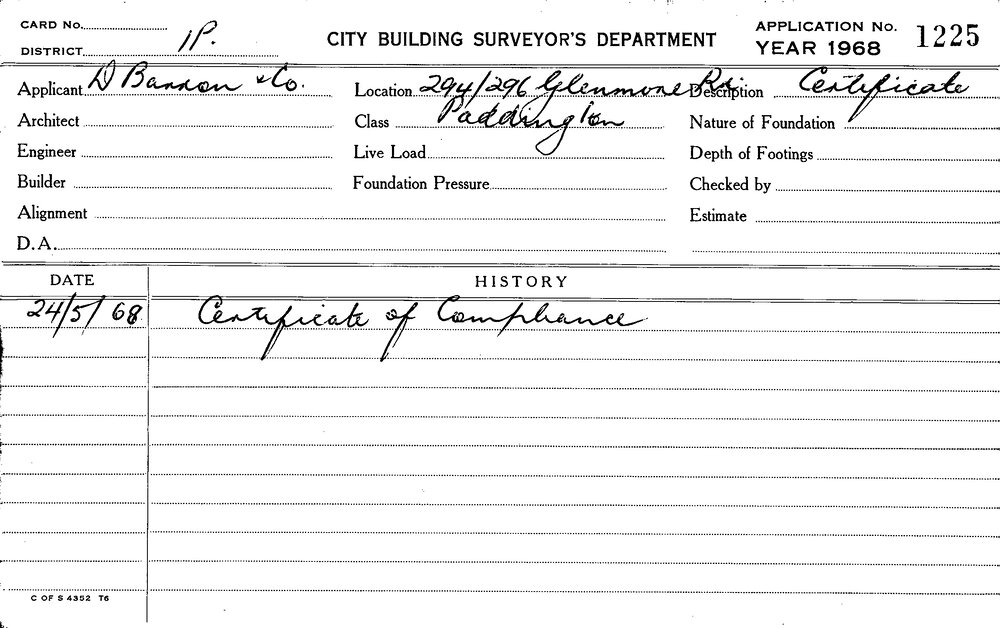 CARD No.
DISTRICT 1P.
CITY BUILDING SURVEYOR'S DEPARTMENT
APPLICATION No. 1225
YEAR 1968
Applicant D Barron & Co. Location 294/296 Glenmore Rd. Description Certificate
Architect Class Paddington Nature of Foundation
Engineer Live Load Depth of Footings
Builder Foundation Pressure Checked by
Alignment Estimate
D.A.
DATE HISTORY
24/5/68 Certificate of Compliance
C OF S 4352 T6